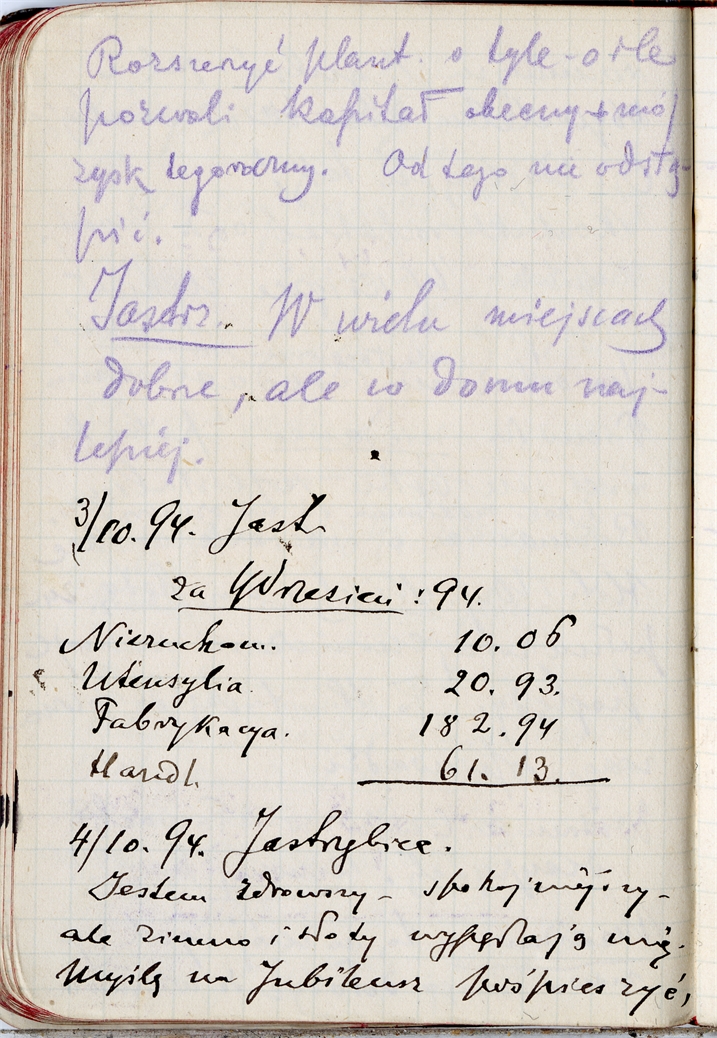 Rozszerzyć plant. o tyle – o ile
pozwoli kapitał obecny + mój
zysk tegoroczny. Od tego nie odstą-
pić.
Jastrz. W wielu miejscach
dobrze, ale w domu naj-
lepiej.
3/10. 94. Jast.
za Wrzesień : 94.
Nieruchom. 10. 06
Utensylia 20. 93.
Fabrykacya. 182. 94
Handl. 61. 13.
4/10. 94. Jastrzębice.
Jestem zdrowszy – spokojniejszy –
ale zimno i słoty wypędzają mię.
Myślę na Jubileusz pośpieszyć,